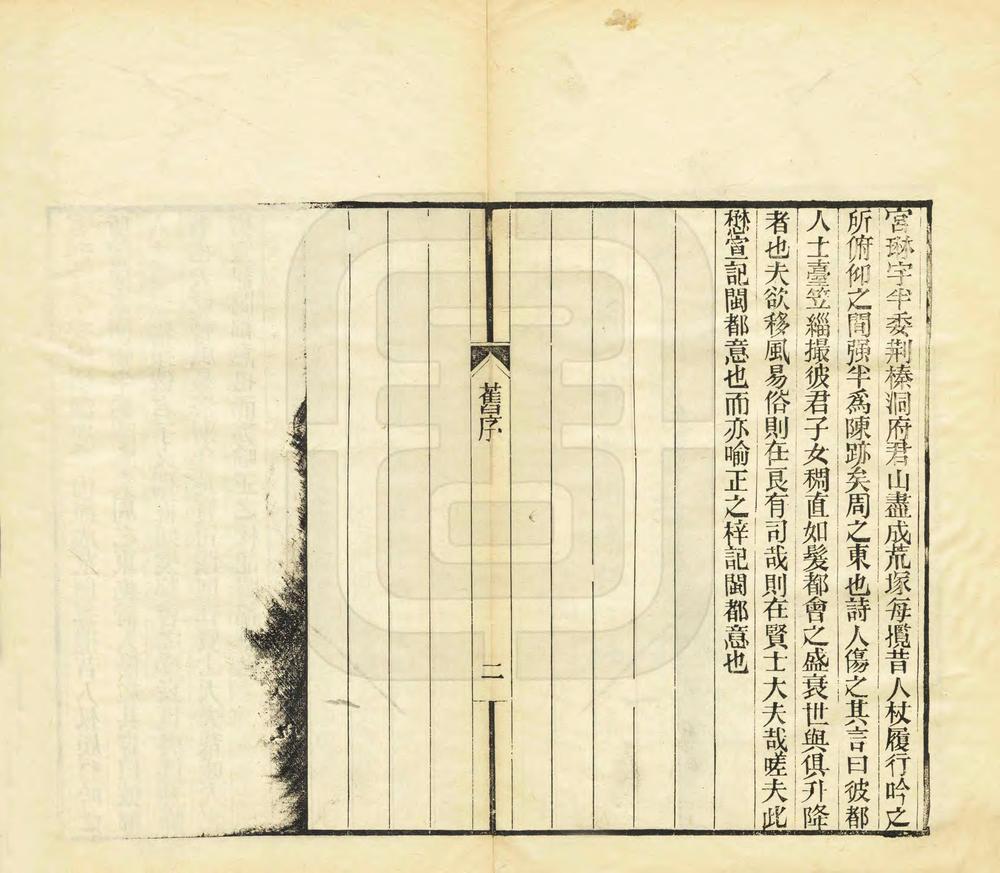 宮琳宇半委荆榛洞府君山盡成荒塚每攬昔人杖履行吟之
所俯仰之間强半爲陳跡矣周之東也詩人傷之其言曰彼都
人士臺笠緇撮彼君子女稠直如髮都會之盛衰世與俱升降
者也夫欲移風易俗則在良有司哉則在賢士大夫哉嗟夫此
懋宣記閩都意也而亦喻正之梓記閩都意也
舊序
二